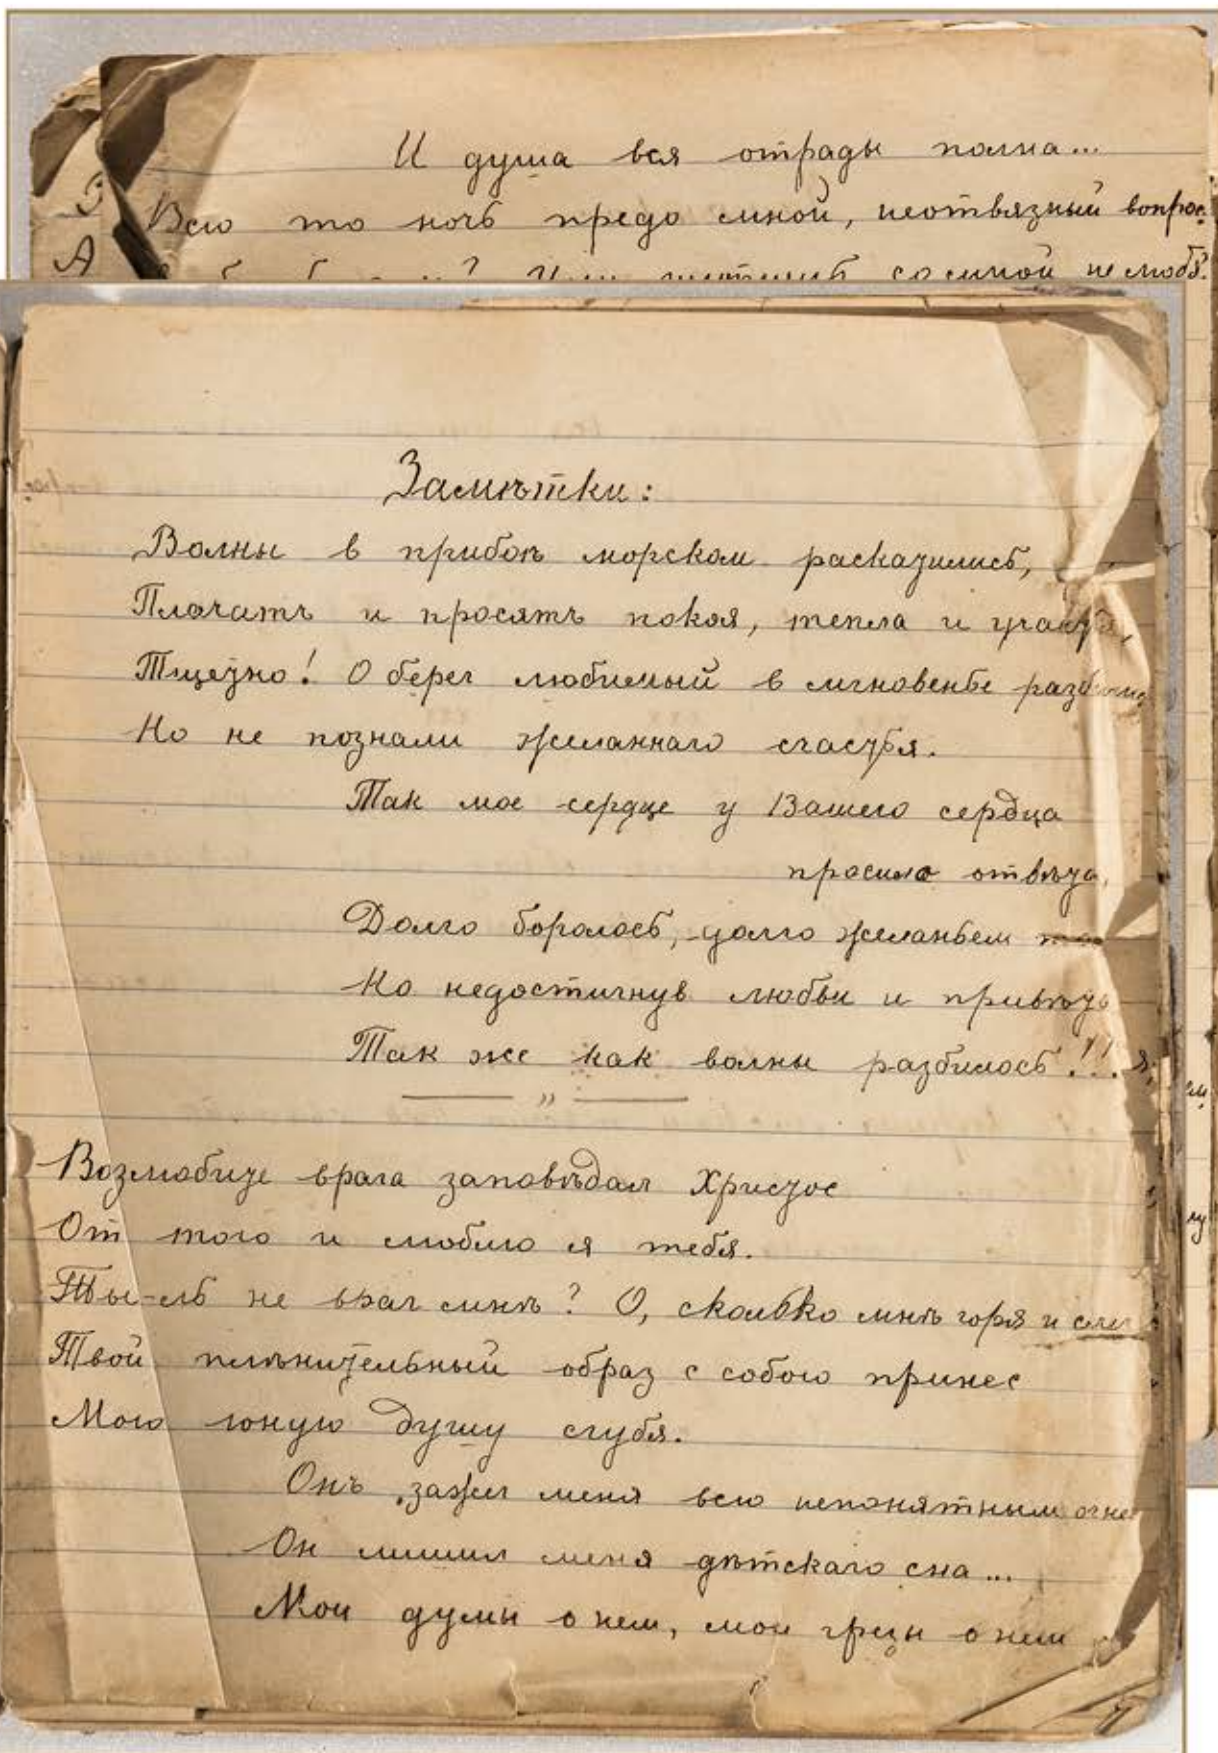 И душа вся отрады полна...
Всю то ночь предо мной, неотвязный вопрос.
А
со мной не любя.
Замѣтки:
Волны в прибоѣ морском расказились,
Плачатъ и просятъ покоя, тепла и участья,
Тщетно! О берег любимый в мгновенье
Но не познали желаннаго счастья.
Так мое сердце у Вашего сердца
просило отвѣта,
Долго боролось, долго желаньем
Но недостигнув любви и привѣта
Так же как волны разбилось!!!
"
Возлюбите врага заповѣдал Христос
От того и люблю я тебя.
Ты-ль не враг мнѣ? О, сколько мнѣ горя и слез
Твой плѣнительный образ с собою принес
Мою юную душу сгубя.
Онъ зажег меня всю непонятным огнем
Он лишил меня дѣтскаго сна...
Мои думы о нем, мои грезы о нем